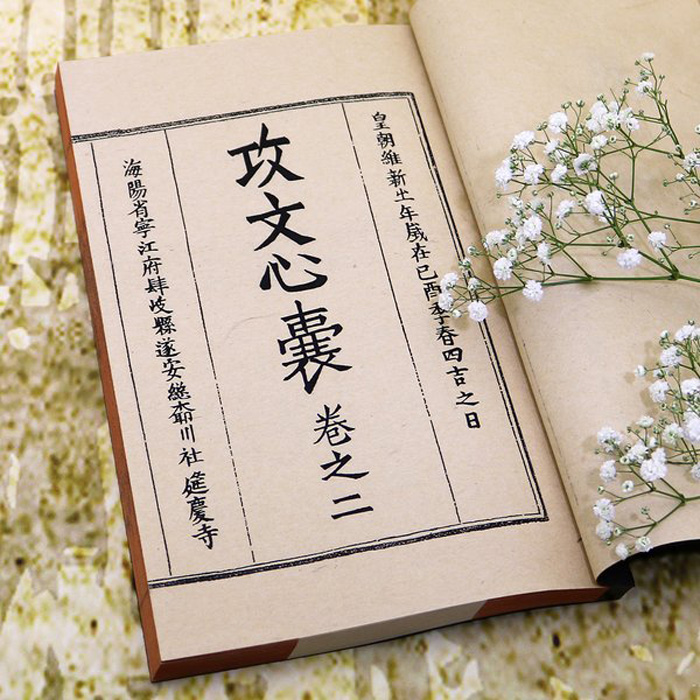 皇朝維新士年歲在已酉季春四吉之日
攻文心囊 卷之二
海陽省寧江府肆岐縣遂安總川社 筵慶寺